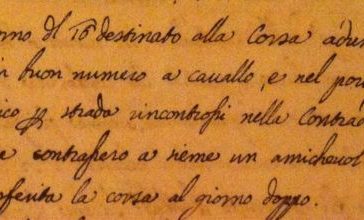 orno dl 16 destinato alla Corsa adre
n buon numero a cauallo, e nel por
ico p strada rincontrosi nella Contrad
e contrassero a sieme un amicheuol
nferita la corsa al giorno doppo.